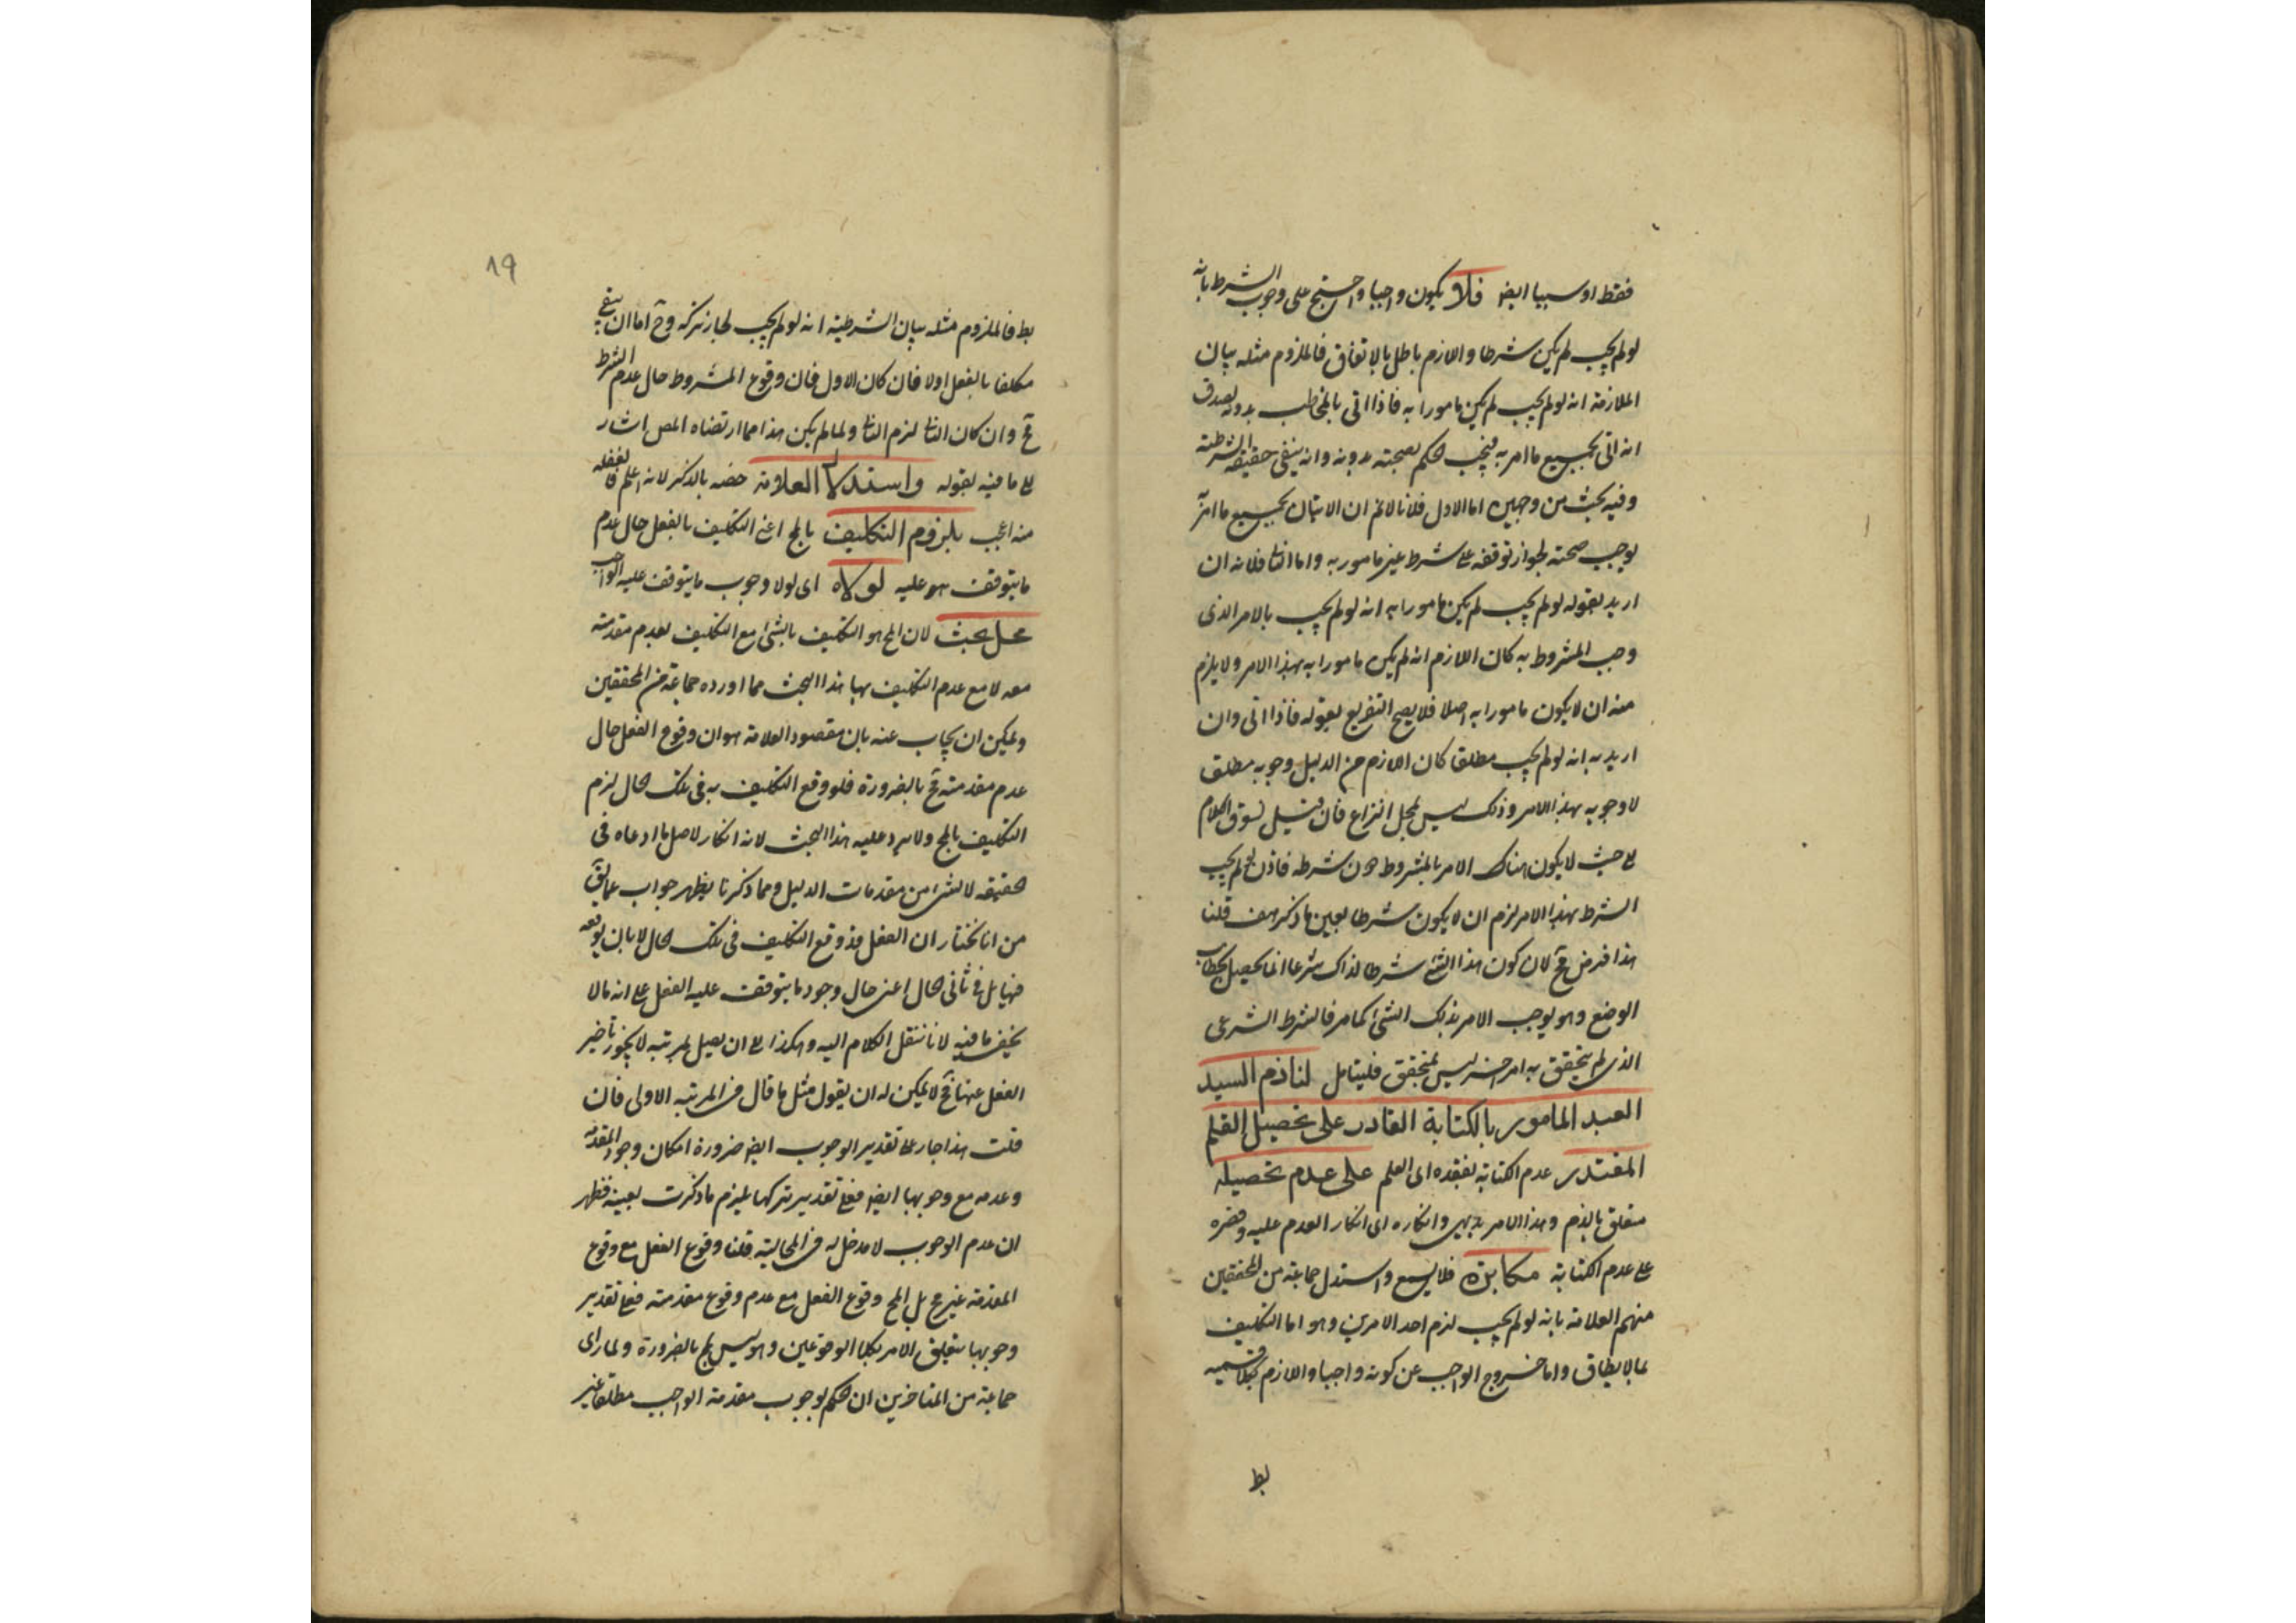 فقط او سببا ايضا فلا يكون واجبا واحتج على وجوب الشرط بانه
لو لم يجب لم يكن شرطا واللازم باطل بالاتفاق فالملزوم مثله بيان
الملازمة انه لو لم يجب لم يكن مامورا به فاذا اتى بالمخاطب بدونه يصدق
انه اتى بجميع ما امر به فيجب الحكم بصحته بدونه وانه ينفى حقيقة الشرطية
وفيه بحث من وجهين اما الاول فلانا لا نم ان الاتيان بجميع ما امر به
يوجب صحته لجواز توقفه على شرط غير مامور به واما الثانى فلانه ان
اريد بقوله لو لم يجب لم يكن مامورا به انه لو لم يجب بالامر الذى
وجب المشروط به كان اللازم انه لم يكن مامورا به بهذا الامر ولا يلزم
منه ان لا يكون مامورا به اصلا فلا يصح التفريع بقوله فاذا اتى وان
اريد به انه لو لم يجب مطلقا كان اللازم من الدليل وجوبه مطلق
لا وجوبه بهذا الامر وذلك ليس لمحل النزاع فان قيل نسوق الكلام
الى حيث لا يكون هناك الامر بالمشروط دون شرطه فاذن لو لم يجب
الشرط بهذا الامر لزم ان لا يكون شرطا بعين ما ذكر هف قلنا
هذا فرض مح لان كون هذا الشئ شرطا لذاك شرعا انما يحصل بخطاب
الوضع وهو يوجب الامر بذلك الشئ كما مر فالشرط الشرعى
الذى لم يتحقق به امر اخر ليس بمتحقق فليتامل لنا ذم السيد
العبد المامور بالكتابة القادر على تحصيل القلم
المعتذر عدم الكتابة بفقده اى القلم على عدم تحصيله
متعلق بالذم وهذا الامر بديهى وانكاره اى انكار الذم عليه وقصره
على عدم الكتابة مكابرة فلا يسمع واستدل جماعة من المحققين
منهم العلامة بانه لو لم يجب لزم احد الامرين وهو اما التكليف
بما لا يطاق واما خروج الواجب عن كونه واجبا واللازم بكلا قسميه
بط
١٩
بط فالملزوم مثله بيان الشرطية انه لو لم يجب لجاز تركه وح اما ان يبقى
مكلفا بالفعل اولا فان كان الاول فان وقوع المشروط حال عدم الشرط
مح وان كان الثانى لزم الثانى ولما لم يكن هذا مما ارتضاه المص اشار
الى ما فيه بقوله واستدلال العلامة خصه بالذكر لانه اعلم فالغفلة
منه اعجب بلزوم التكليف بالمح اعنى التكليف بالفعل حال عدم
ما يتوقف هو عليه لولاه اى لولا وجوب ما يتوقف عليه الواجب
محل بحث لان المح هو التكليف بالشئ مع التكليف بعدم مقدمته
معه لا مع عدم التكليف بها هذا البحث مما اورده جماعة من المحققين
ويمكن ان يجاب عنه بان مقصود العلامة هو ان وقوع الفعل حال
عدم مقدمته مح بالضرورة فلو وقع التكليف به فى تلك الحال لزم
التكليف بالمح ولا يرد عليه هذا البحث لانه انكار لاصل ما ادعاه فى
الحقيقة لا لشئ من مقدمات الدليل ومما ذكرنا يظهر جواب عما يق
من انا نختار ان الفعل قد وقع التكليف فى تلك الحال لا بان يوقعه
فيها بل فى ثانى الحال اعنى حال وجود ما يتوقف عليه الفعل على انه مما لا
يخفى ما فيه لانا ننقل الكلام اليه وهكذا الى ان يصل لمرتبة لا يجوز تاخير
الفعل عنها فح لا يمكن له ان يقول مثل ما قال فى المرتبة الاولى فان
قلت هذا جار على تقدير الوجوب ايضا ضرورة امكان وجود المقدمة
وعدمه مع وجوبها ايضا فعلى تقدير تركها يلزم ما ذكرت بعينه فظهر
ان عدم الوجوب لا مدخل له فى المحالية قلنا وقوع الفعل مع وقوع
المقدمة غير مح بل المح وقوع الفعل مع عدم وقوع مقدمته فعلى تقدير
وجوبها يتعلق الامر بكلا الوقوعين وهو ليس بمح بالضرورة ولما راى
جماعة من المتاخرين ان الحكم بوجوب مقدمة الواجب مطلقا غير